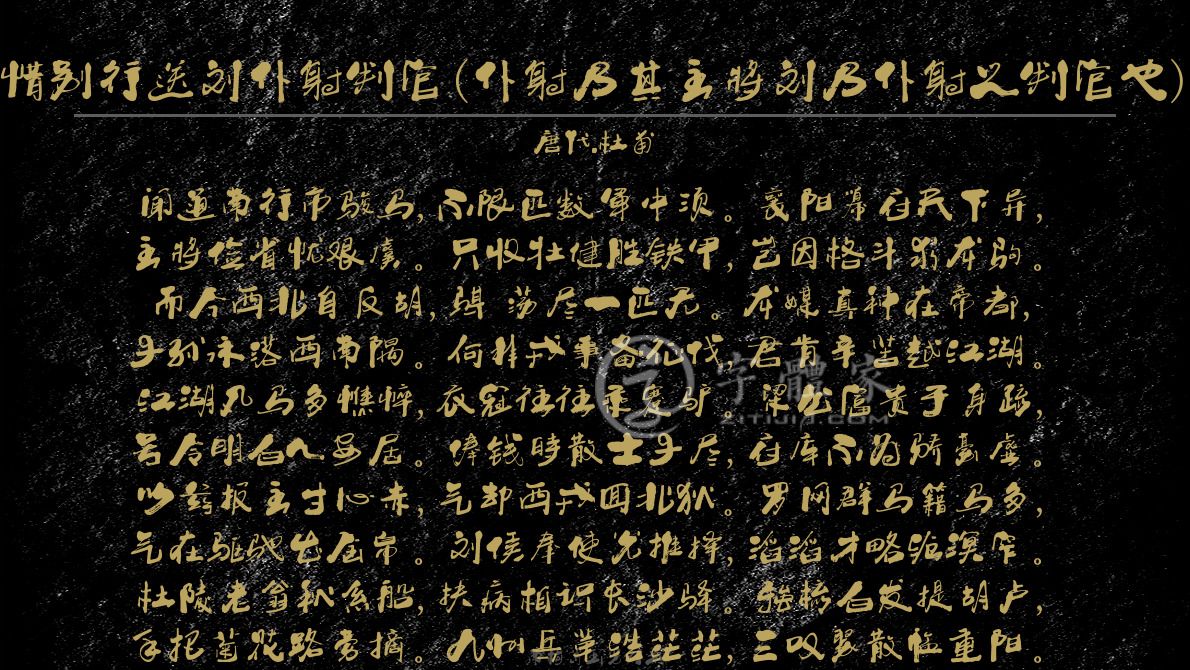 惜别行送刘仆射判官(仆射乃其主将刘乃仆射之判官也)
唐代.杜甫
闻道南行市骏马,不限匹数军中须。襄阳幕府天下异,
主将俭省忧艰虞。只收壮健胜铁甲,岂因格斗求龙驹。
而今西北自反胡,骐 荡尽一匹无。龙媒真种在帝都,
子孙永落西南隅。向非戎事备征伐,君肯辛苦越江湖。
江湖凡马多憔悴,衣冠往往乘蹇驴。梁公富贵于身疏,
号令明白人安居。俸钱时散士子尽,府库不为骄豪虚。
以兹报主寸心赤,气却西戎回北狄。罗网群马籍马多,
气在驱驰出金帛。刘侯奉使光推择,滔滔才略沧溟窄。
杜陵老翁秋系船,扶病相识长沙驿。强梳白发提胡卢,
手把菊花路旁摘。九州兵革浩茫茫,三叹聚散临重阳。
字體家
ZITIJIA.COM